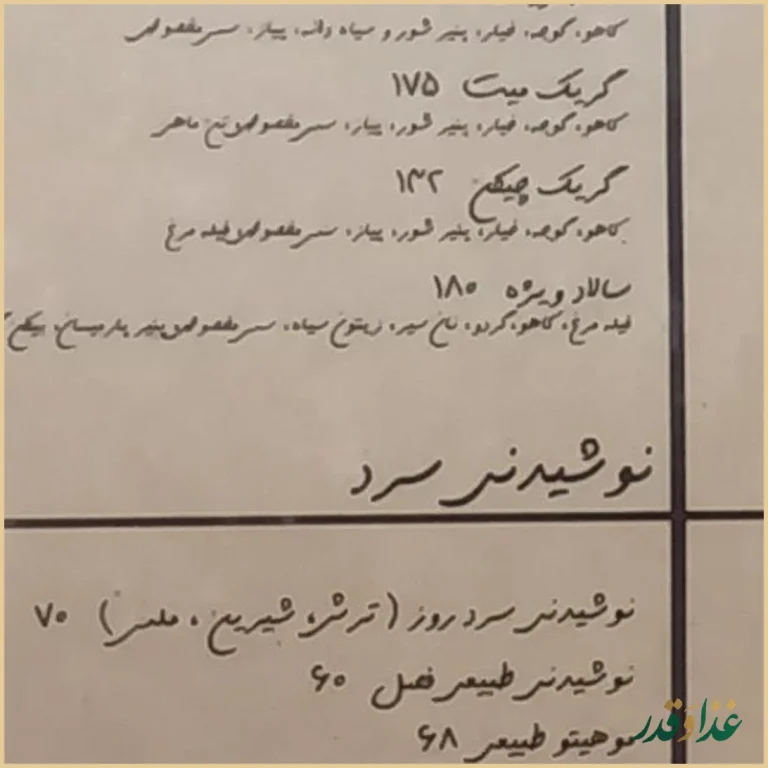 کاهو، گوجه، خیار، پنیر شور و سیاه دانه، پیاز، سس مخصوص
گریک میت ۱۷۵
کاهو، گوجه، خیار، پنیر شور، پیاز، سس مخصوص، تن ماهی
گریک چیکن ۱۳۲
کاهو، گوجه، خیار، پنیر شور، پیاز، سس مخصوص، فیله مرغ
سالاد ویژه ۱۸۰
فیله مرغ، کاهو، گردو، نان سیر، زیتون سیاه، سس مخصوص، پنیر پارمیسان، بیکن
نوشیدنی سرد
نوشیدنی سرد روز (ترش، شیرین، ملس) ۷۰
نوشیدنی طبیعی فصل ۶۰
موهیتو طبیعی ۶۸
غذا و قدر